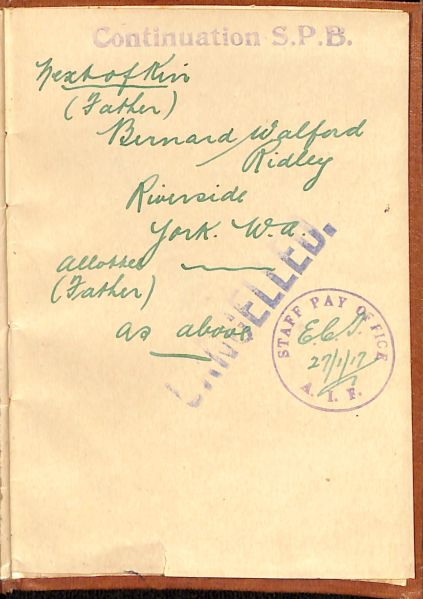 Continuation S.P.B.
Next of Kin
(Father)
Bernard Walford
Ridley
Riverside
York. W.A.
Allottee
(Father)
as above
CANCELLED.
STAFF PAY OFFICE
27/1/17
A. I. F.